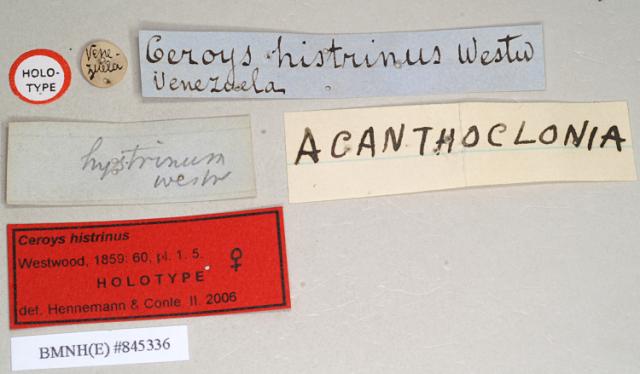 HOLO-
TYPE
Vene-
zuella
Ceroys histrinus Westw
Venezuela
hystrinum
westw
ACANTHOCLONIA
Ceroys histrinus
Westwood, 1859: 60, pl. 1. 5.
HOLOTYPE ♀
det. Hennemann & Conle II. 2006
BMNH(E) #845336